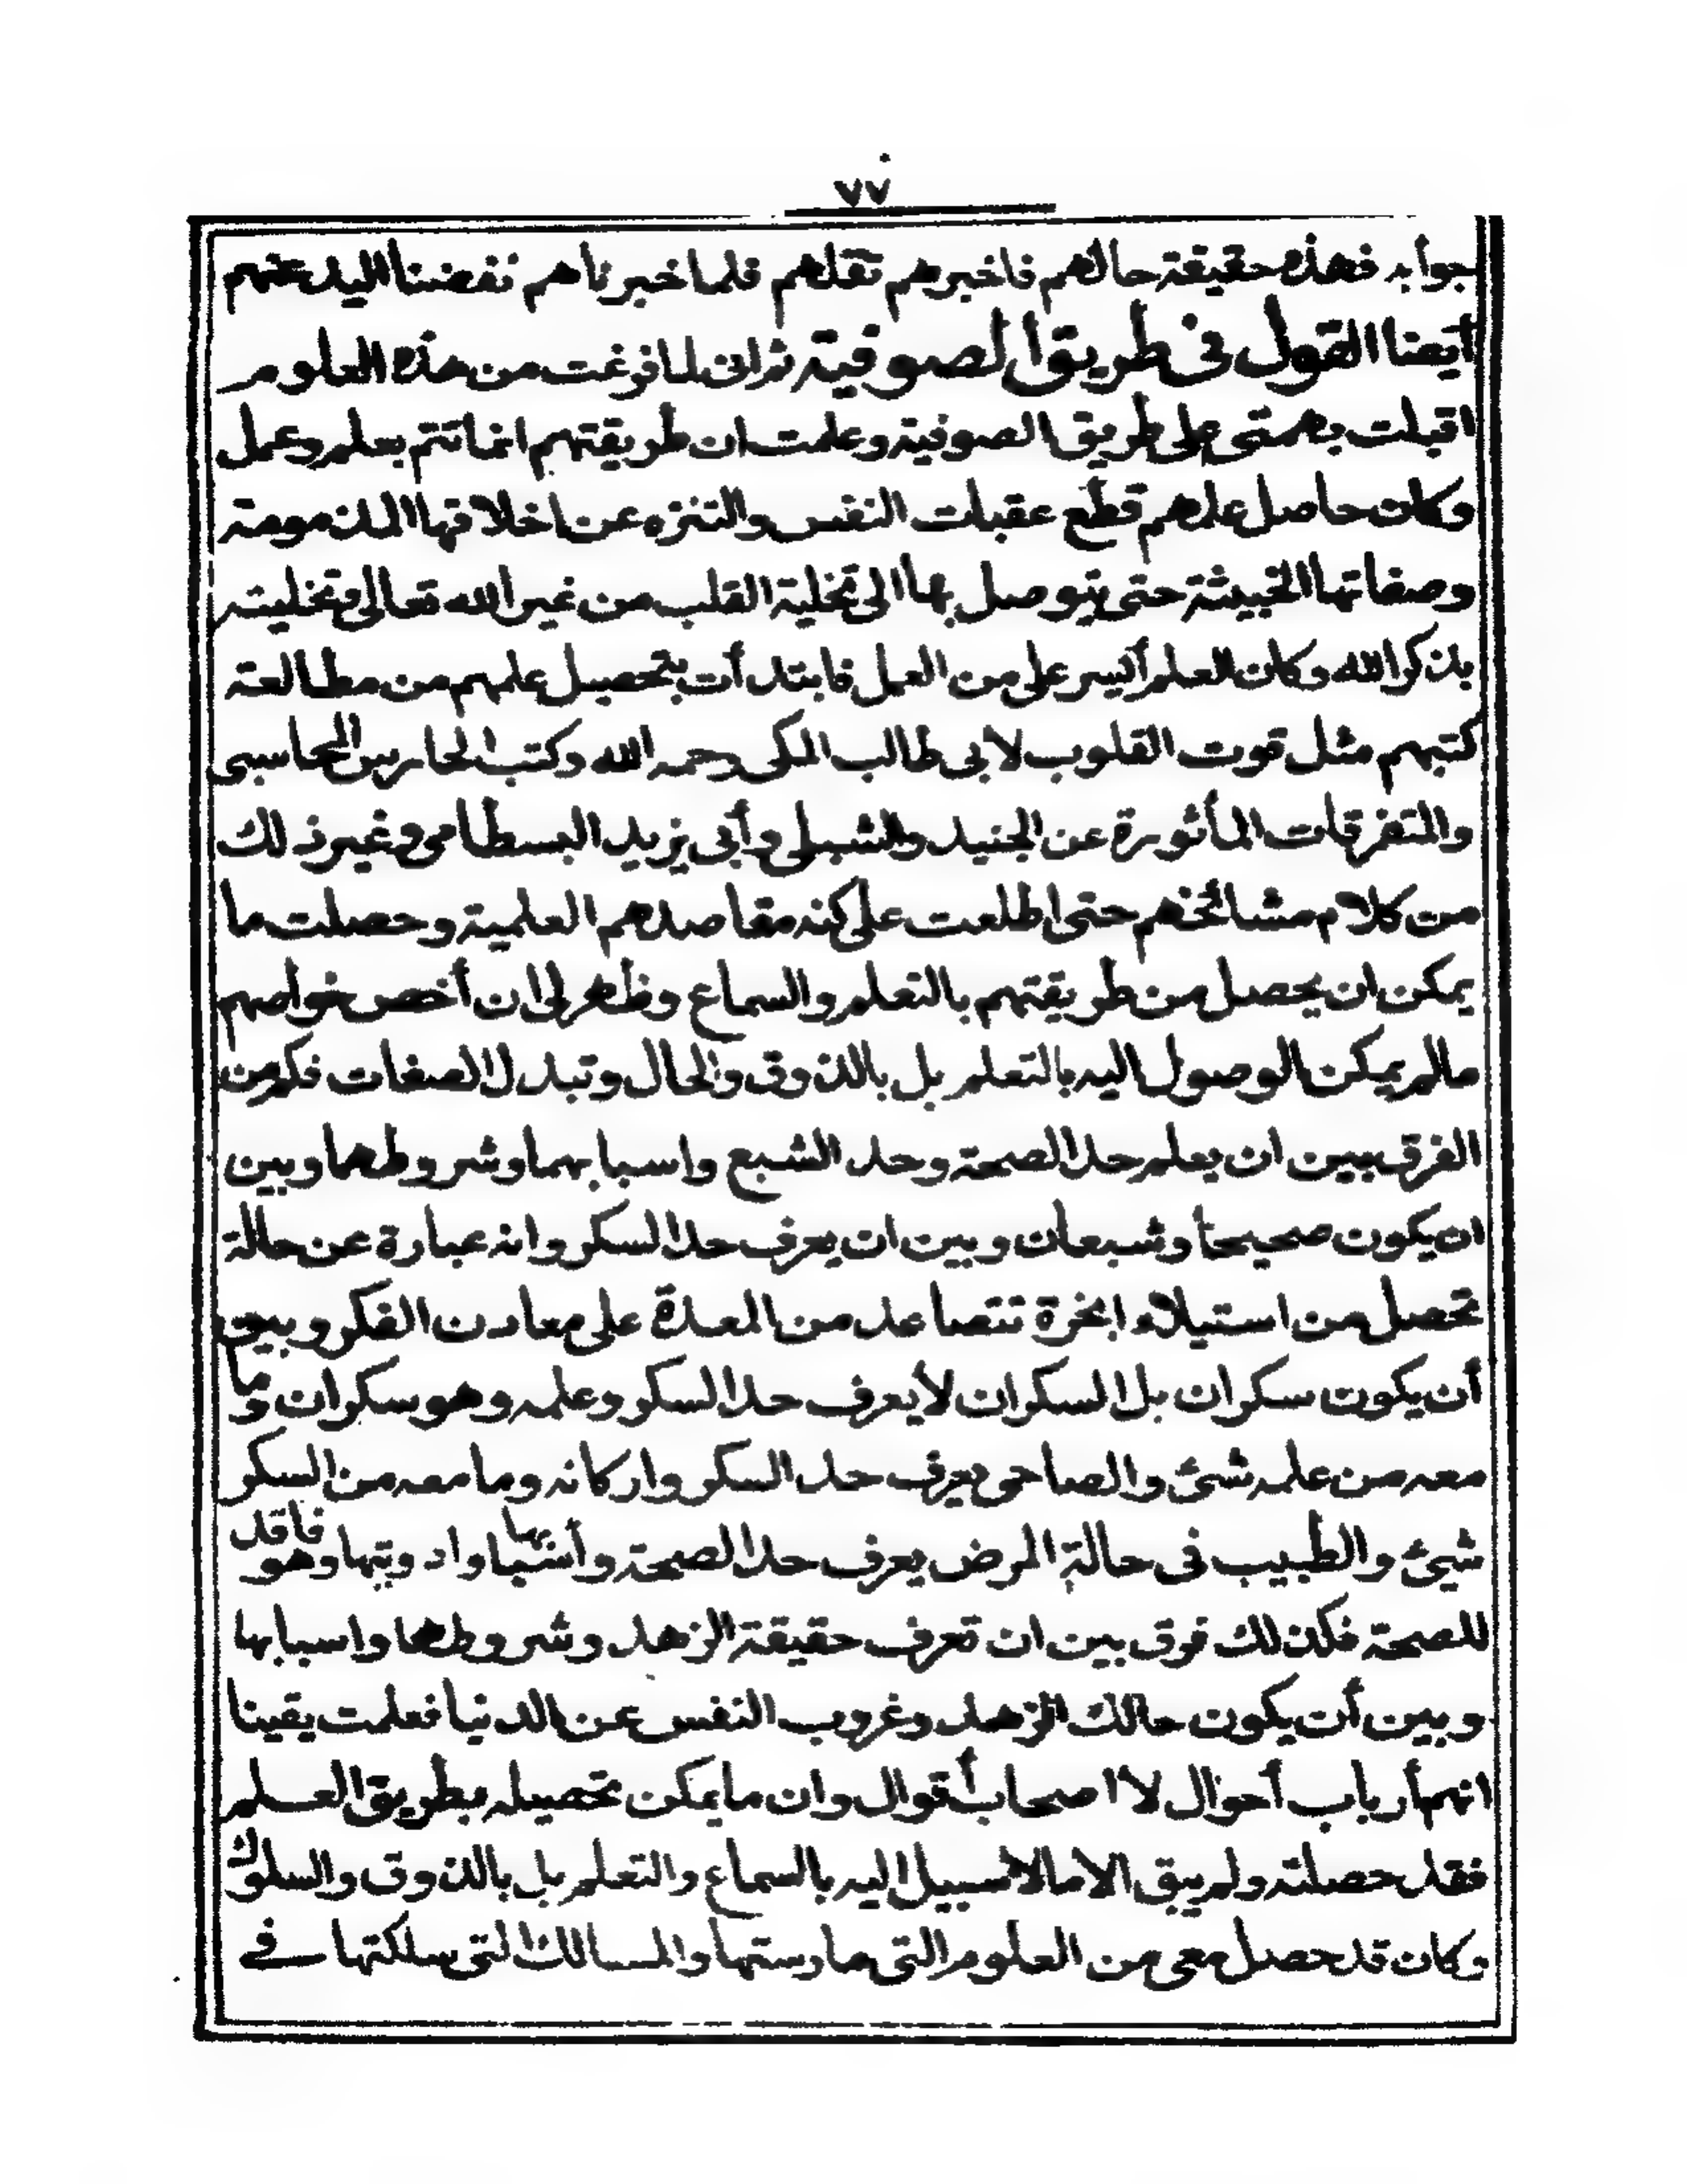 ٧٧
جوابه فهذه حقيقة حالهم فاخبرهم تقلهم فلما خبرناهم نفضنا اليد عنهم
أيضا القول فى طريق الصوفية ثم انى لما فرغت من هذه العلوم
اقبلت بهمتى على طريق الصوفية وعلمت ان طريقتهم انما تتم بعلم وعمل
وكان حاصل علمهم قطع عقبات النفس والتنزه عن اخلاقها المذمومة
وصفاتها الخبيثة حتى يتوصل بها الى تخلية القلب من غير الله تعالى وتحليته
بذكر الله وكان العلم أيسر على من العمل فابتدأت بتحصيل علمهم من مطالعة
كتبهم مثل قوت القلوب لابى طالب المكى رحمه الله وكتب الحارس المحاسبى
والمتفرقات المأثورة عن الجنيد والشبلى وأبى يزيد البسطامى وغير ذلك
من كلام مشائخهم حتى اطلعت على كنه مقاصدهم العلمية وحصلت ما
يمكن ان يحصل من طريقتهم بالتعلم والسماع وظهر لى ان أخص خواصهم
مالم يمكن الوصول اليه بالتعلم بل بالذوق والحال وتبدل الصفات فكم من
الفرق بين ان يعلم حد الصحة وحد الشبع واسبابهما وشروطهما وبين
ان يكون صحيحا وشبعان وبين ان يعرف حد السكر وانه عبارة عن حالة
تحصل من استيلاء ابخرة تتصاعد من المعدة على معادن الفكر وبين
أن يكون سكران بل السكران لا يعرف حد السكر وعلمه وهو سكران وما
معه من علمه شئ والصاحى يعرف حد السكر واركانه وما معه من السكر
شئ والطبيب فى حالة المرض يعرف حد الصحة وأسبابها وادويتها وهو فاقد
للصحة فكذلك فرق بين ان تعرف حقيقة الزهد وشروطها واسبابها
وبين أن يكون حالك الزهد وغروب النفس عن الدنيا فعلمت يقينا
انهم أرباب أحوال لا اصحاب أقوال وان ما يمكن تحصيله بطريق العلم
فقد حصلته ولم يبق الا مالا سبيل اليه بالسماع والتعلم بل بالذوق والسلوك
وكان قد حصل معى من العلوم التى مارستها والمسالك التى سلكتها فى